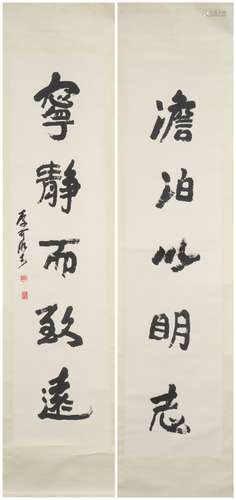 澹泊以明志
寧靜而致遠
李可染